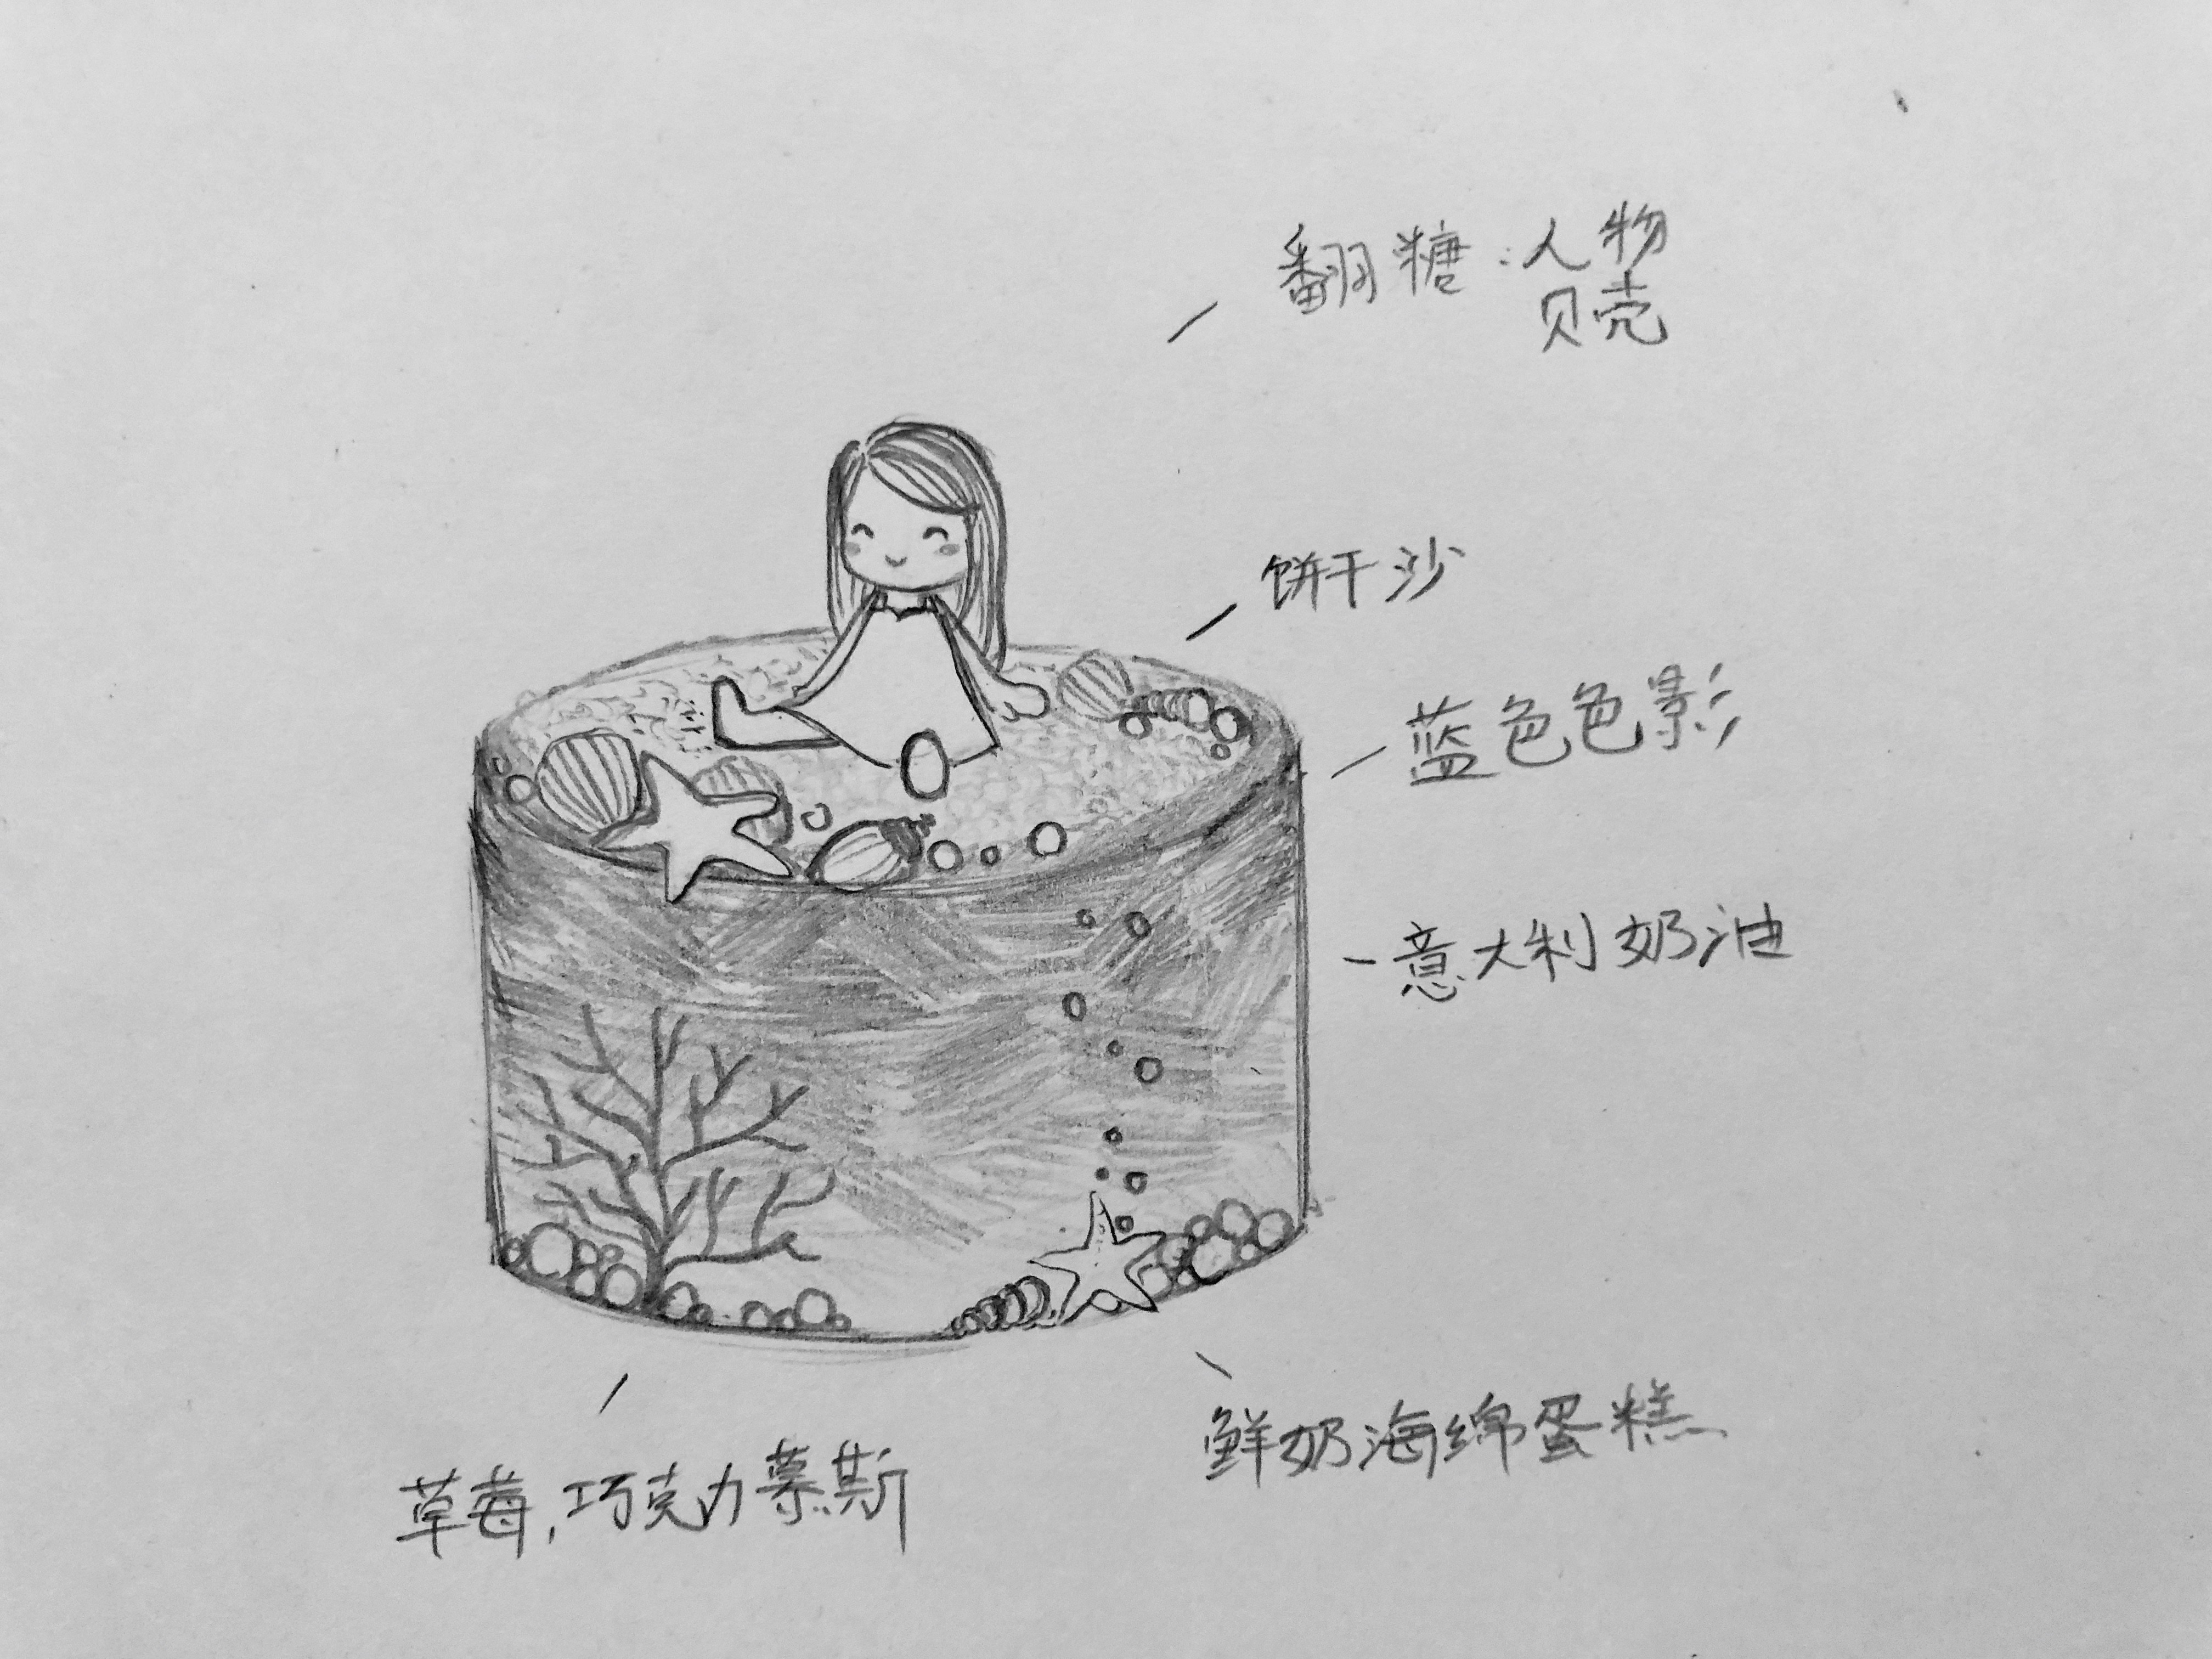 翻糖：人物
贝壳
饼干沙
蓝色色影
意大利奶油
鲜奶海绵蛋糕
草莓，巧克力慕斯